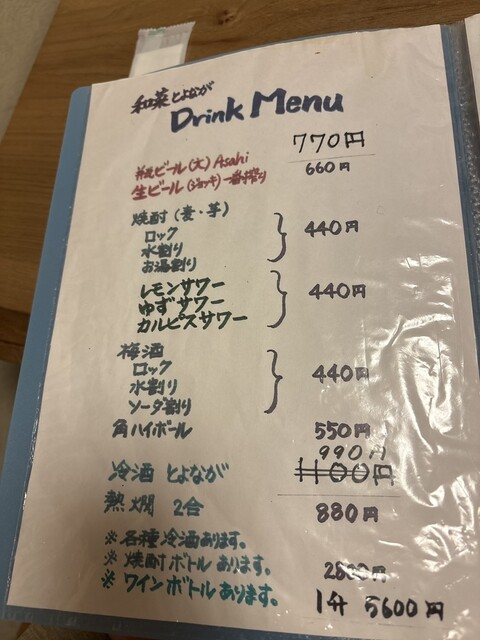 和菜とよなが
Drink Menu
瓶ビール(大)Asahi 770円
生ビール(ジョッキ)一番搾り 660円
焼酎(麦・芋)
ロック
水割り 440円
お湯割り
レモンサワー
ゆずサワー 440円
カルピスサワー
梅酒
ロック
水割り 440円
ソーダ割り
角ハイボール 550円
990円
冷酒 とよなが 1100円
熱燗 2合 880円
※各種冷酒あります。
※焼酎ボトルあります。
※ワインボトルあります。
1升 5600円